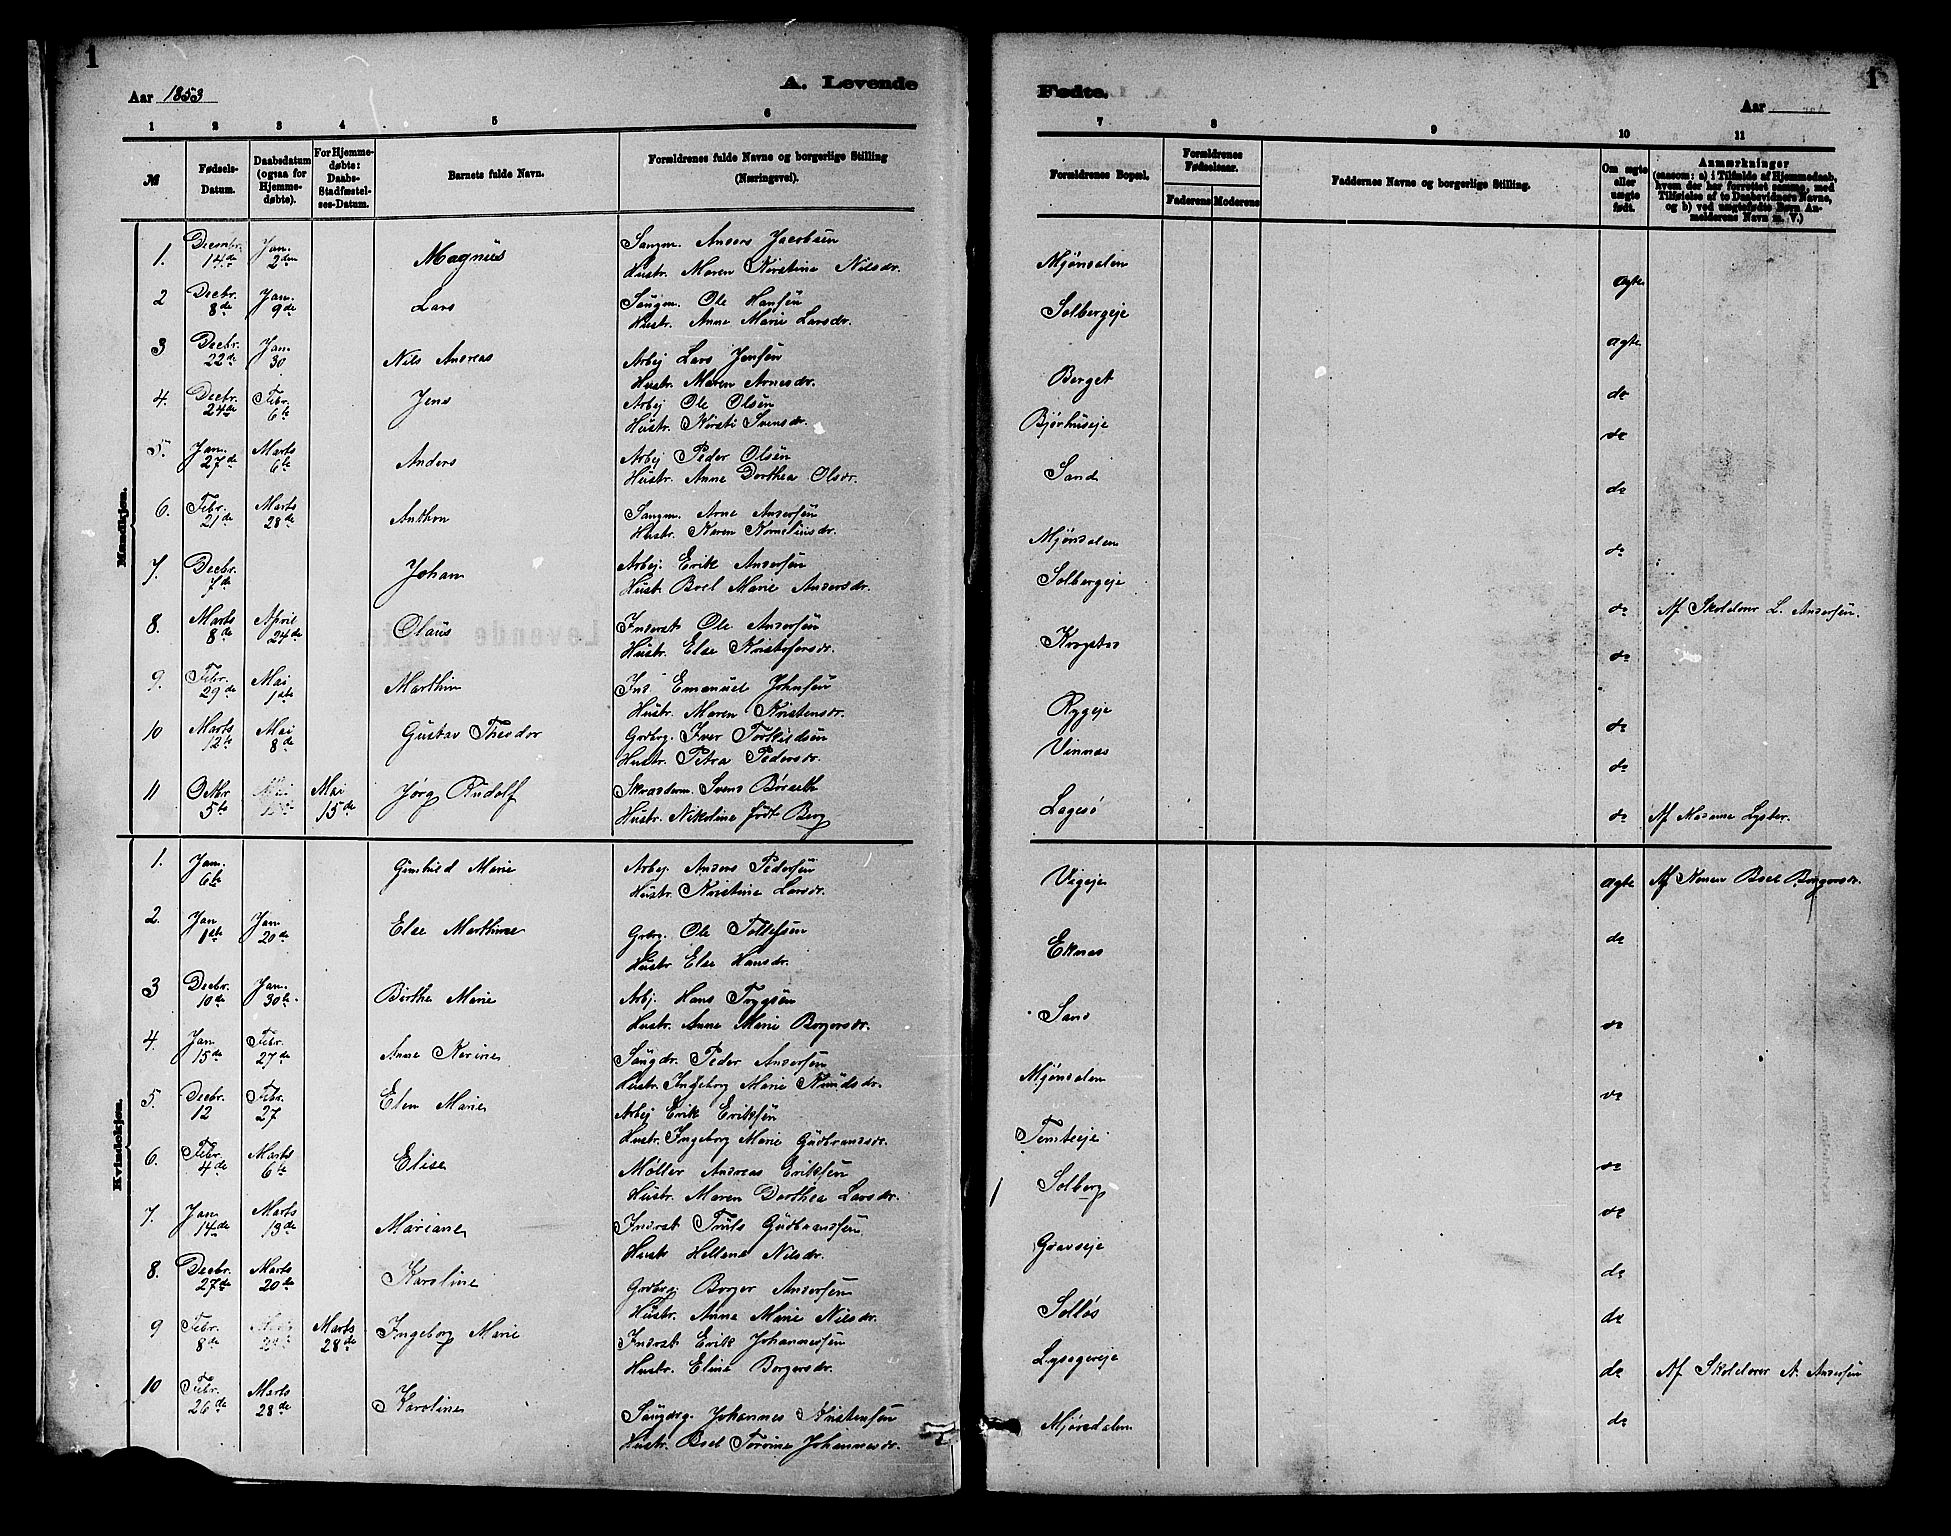 1
Aar 1853
A. Levende
1 2 3 4 5 6
№
Fødsels-
Datum.
Daabsdatum
(ogsaa for
Hjemme-
døbte).
For Hjemme-
døbte:
Daabs-
Stadfæstel-
ses-Datum.
Barnets fulde Navn.
Forældrenes fulde Navne og borgerlige Stilling
(Næringsvei).
Mandkjøn.
1. Decmbr. 14de Jan. 2den Magnus
Sangm. Anders Jacobsen
Hustr. Maren Kirstine Nilsdr.
2 Decbr. 8de Jan. 9de Lars
Saugm. Ole Hansen
Hustr. Anne Marie Larsdr.
3 Decbr. 22de Jan. 30 Nils Andreas
Arbej Lars Jensen
Hustr. Maren Arnesdr.
4. Decbr. 24de Febr. 6te Jens
Arbej Ole Olsen
Hustr. Kirsti Svensdr.
5. Jan. 27de Marts 6te Anders
Arbej Peder Olsen
Hustr. Anne Dorthea Olsdr.
6. Febr. 21de Marts 28de Anthon
Sangm. Arne Andersen
Hustr. Karen Korneliusdr.
7. Decbr. 7de Johan
Arbej. Erik Andersen
Hustr Boel Marie Andersdr.
8. Marts 8de April 24de Olaus
Inderst Ole Andersen
Hustr. Else Kristofersdr.
9. Febr. 29de Mai 1ste Marthin
Ind. Emanuel Johnsen
Hustr. Maren Kristensdr.
10 Marts 12te Mai 8de Gustav Theodor
Grdbrg. Iver Torkildsen
Hustr. Petra Pedersdr.
11 5te Mai 15de Jørg Rudolf
Svend Børseth
Hustr. Nikoline født Berg
Kvindekjøn.
1. Jan. 6te Gunhild Marie
Arbej Anders Pedersen
Hustr. Kristine Larsdr.
2. Jan 1ste Jan 20de Else Marthine
Grdbrg. Ole Tollefsen
Hustr Else Hansdr.
3 Decbr. 10de Jan. 30te Birthe Marie
Arbj. Hans Trygsen
Hustr. Anne Marie Borgersdr.
4. Jan 15de Febr. 27de Anne Karine
Saugdr. Peder Andersen
Hustr Ingeborg Marie Knudsdr.
5. Decbr. 12 Febr. 27 Elen Marie
Arbej Erik Eriksen
Hustr. Ingeborg Marie Gudbrandsdr.
6. Febr. 4de Marts 6te Elise
Møller Andreas Eriksen
Hustr. Maren Dorthea Larsdr.
7. Jan 14de Marts 13de Mariane
Inderst Truls Gudbrandsen
Hustr Hellene Nilsdr.
8. Decbr. 27de Marts 20de Karoline
Grdbrg. Borger Andersen
Hustr. Anne Marie Nilsdr.
9 Febr. 8de Marts 28de Ingeborg Marie
Inderst Erik Johannesen
Hustr. Eline Borgersdr.
10 Febr. 26de Marts 28de Karoline
Saugdrg. Johannes Kristensen
Hustr. Boel Torine Johannesdr.
1
Fødte.
Aar
7 8 9 10 11
Forældrenes Bopæl.
Forældrenes
Fødselsaar.
Faderens Moderens
Faddernes Navne og borgerlige Stilling.
Om ægte
eller
uægte
født.
Anmærkninger
(saasom: a) i Tilfælde af Hjemmedaab,
hvem der har forrettet samme, med
Tilføielse af to Daabsvidners Navne,
og b) ved uægtefødte Børn An-
melderens Navn m. V.)
Mjøndalen ægte
Solbergeje ægte
Berget do
Bjørhuseje do
Sand do
Mjøndalen do
Solbergeje do Af Skolelærer L. Andersen.
Krogstad do
Rygeje do
Vinnæs do
Lagesø do Af Madame Lyster.
Vigeje ægte Af Konen Boel Borgersdr.
Eknæs do
Sand do
Mjøndalen do
Temteeje do
Solberg do
Gravseje do
Solløs do
Lysagereje do Af Skolelærer A. Andersen
Mjøndalen do